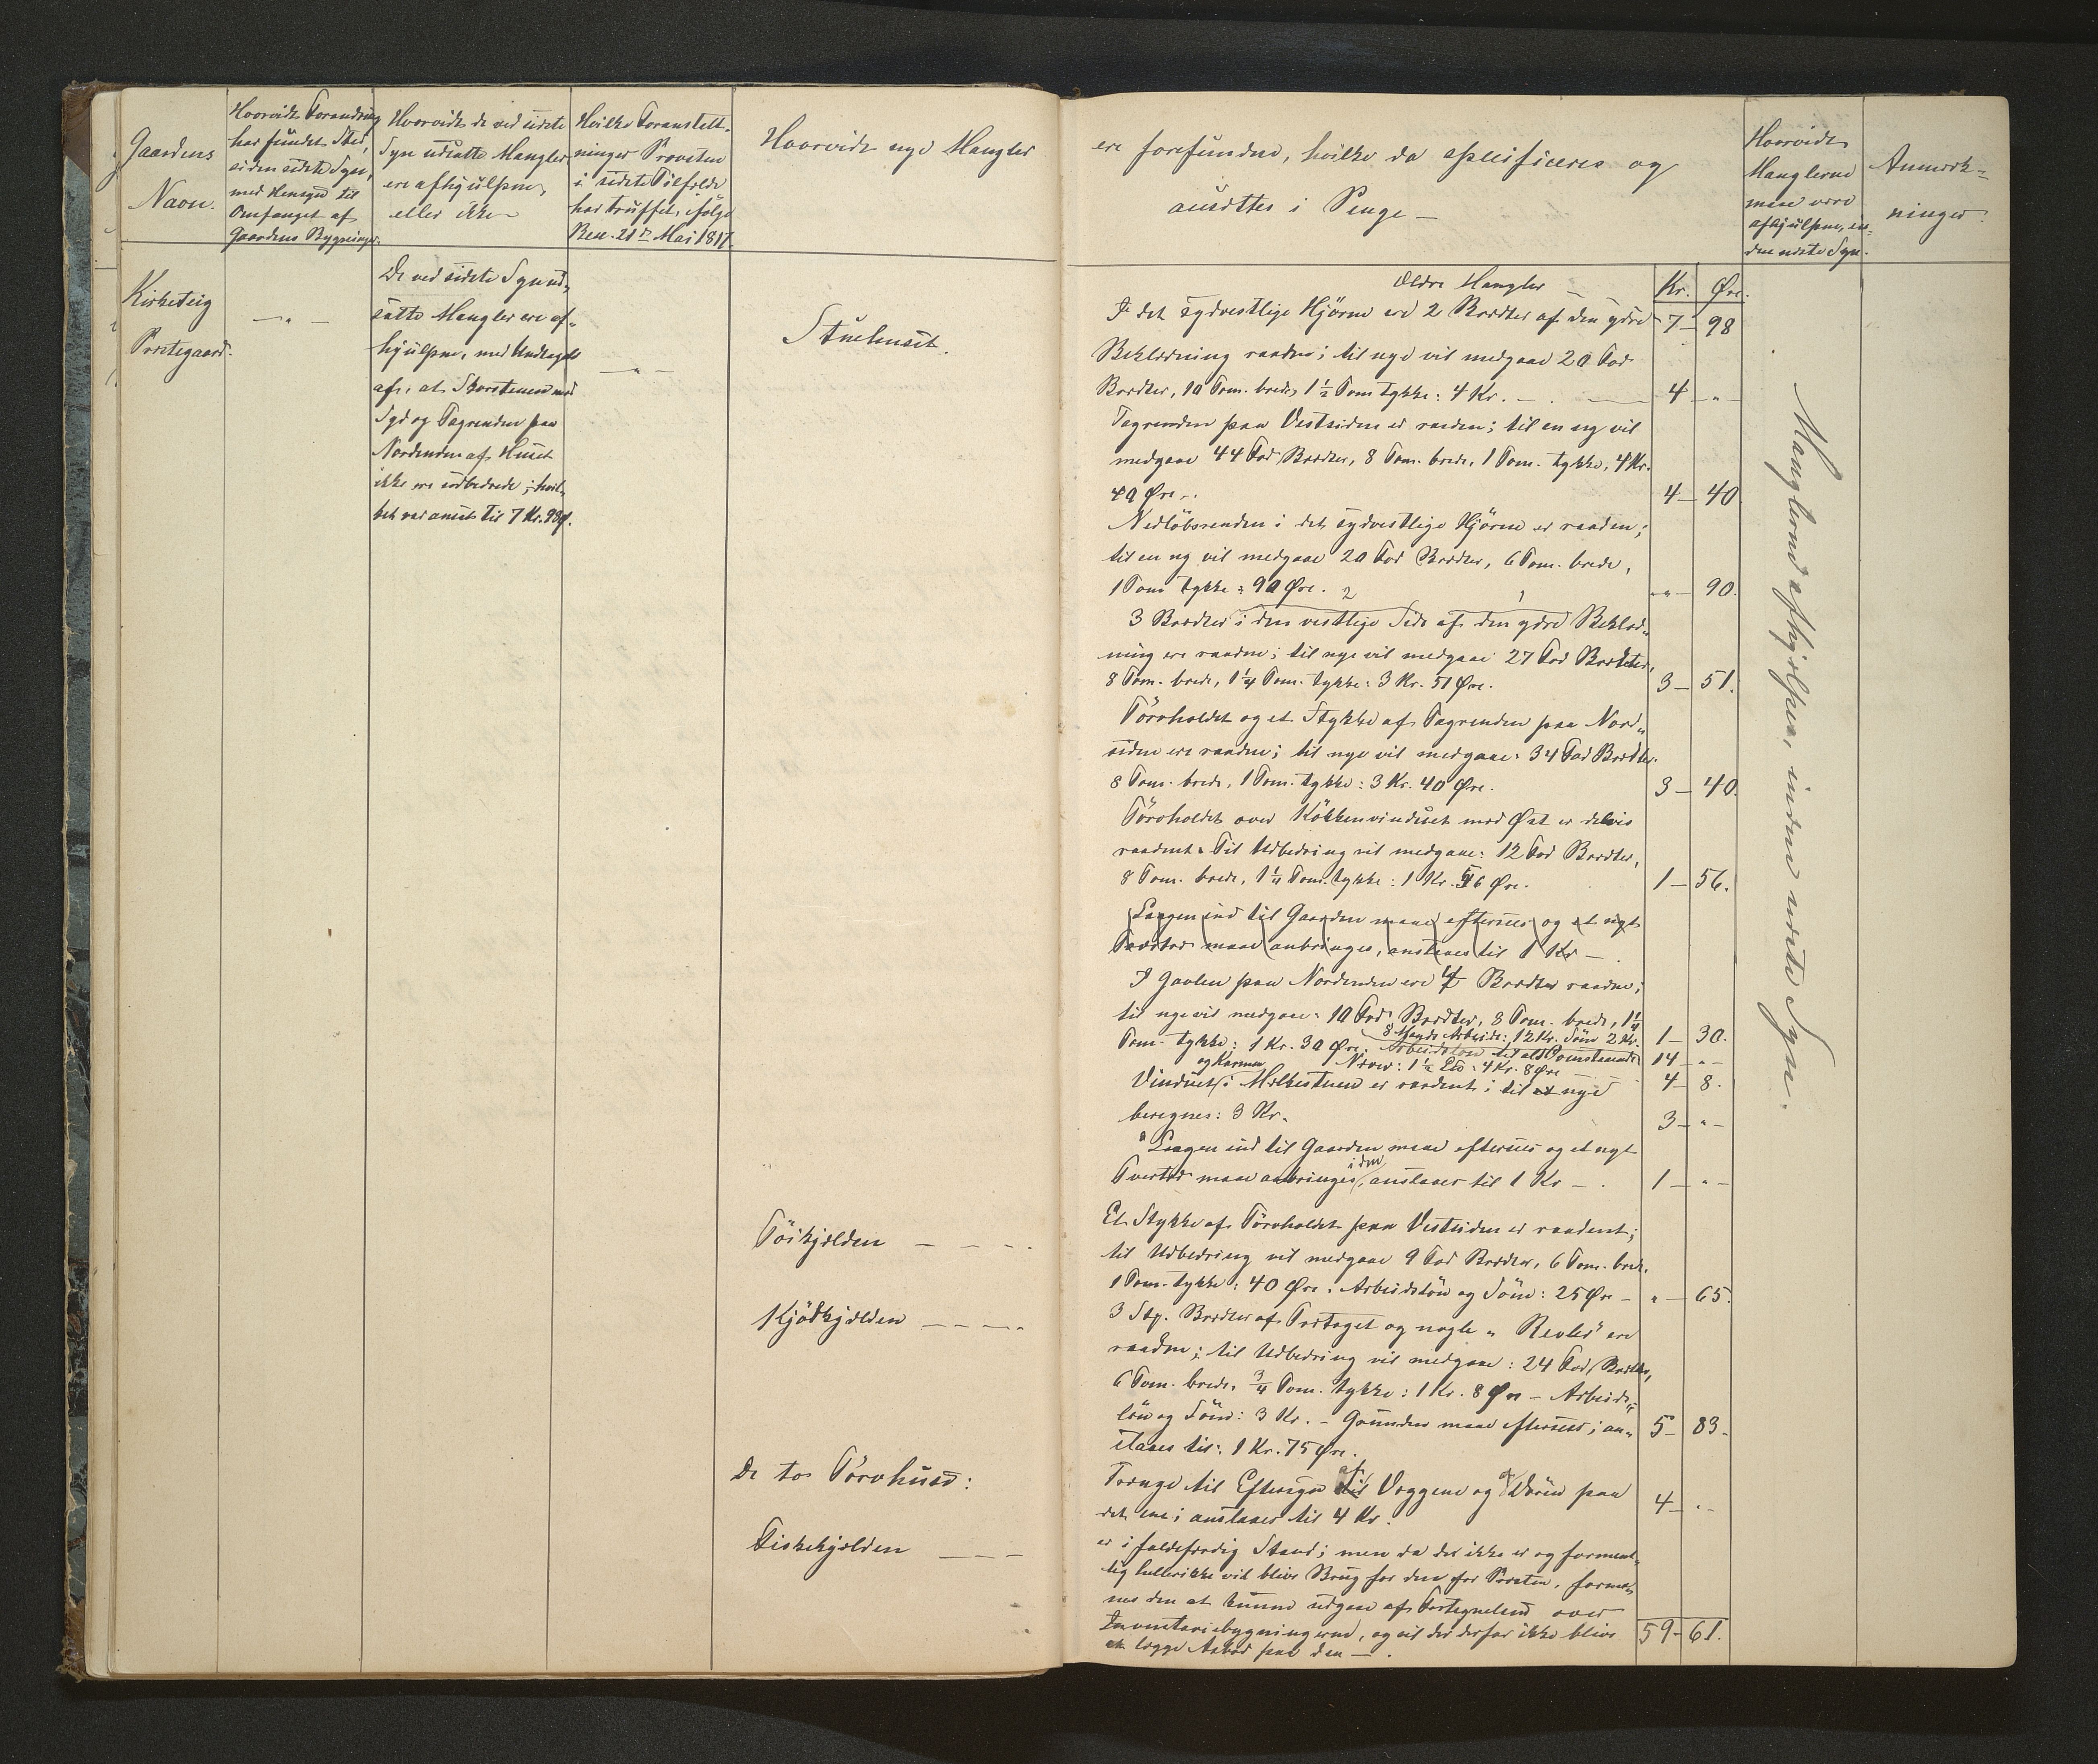 Gaardens
Navn.
Hvorvidt Forandring
har fundet Sted,
siden sidste Syn,
med Hensyn til
Omfanget af
Gaardens Bygninger.
Hvorvidt de ved sidste
Syn udsatte Mangler
ere afhjulpne,
eller ikke
Hvilke Foranstalt-
ninger Provsten
i sidste Tilfælde
har truffet, ifølge
Resc. 21de Mai 1817.
Hvorvidt nye Mangler
ere forefundne, hvilke da specificeres og
ansættes i Penge —
Hvorvidt
Manglerne
maa være
afhjulpne, in-
den næste Syn.
Anmærk-
ninger.
Kirketeig
Præstegaard.
— " —
De ved sidste Syn ud-
satte Mangler ere af-
hjulpne, med Undtagelse
af, at Skorstenen mod
Syd og Tagrenden paa
Nordenden af Huset
ikke ere udbedrede; hvil-
ket var ansat til 7 Kr. 98 Ø.
— " —
Stuehuset.
Ældre Mangler —
Kr. Øre.
7 — 98
I det sydvestlige Hjörne ere 2 Bordter af den ydre
Beklædning raadne; til nye vil medgaae 20 Fod
Bordter, 10 Tom. brede, 1 1/2 Tom tykke: 4 Kr. — 4 — " —
Tagrenden paa Vestsiden er raaden; til en ny vil
medgaae 44 Fod Bordter, 8 Tom. brede, 1 Tom. tykke, 4 Kr.
40 Øre. 4 — 40
Nedlöbsrenden i det sydvestlige Hjörne er raaden;
til en ny vil medgaae 20 Fod Bordter, 6 Tom. brede,
1 Tom tykke: 90 Øre. " — 90.
2 1
3 Bordter i den vestlige Side af den ydre Beklæd-
ning ere raadne; til nye vil medgaae 27 Fod Bordter,
8 Tom. brede, 1 1/4 Tom. tykke: 3 Kr. 51 Øre. 3 — 51.
Törvholdet og et Stykke af Tagrenden paa Nord-
siden ere raadne; til nye vil medgaae: 34 Fod Bordter
8 Tom. brede, 1 Tom. tykke: 3 Kr. 40 Øre. 3 — 40.
Törvholdet over Kökkenvinduet mod Øst er delvis
raadent. Til Udbedring vil medgaae: 12 Fod Bordter,
8 Tom. brede, 1 1/4 Tom. tykke: 1 Kr. 56 Øre. 1 — 56.
Laagen ind til Gaarden maae eftersees og et nyt
maae anbringes, anslaaes til 1 Kr —
I Gavlen paa Nordenden ere 4 Bordter raadne;
til nye vil medgaae: 10 Fod Bordter, 8 Tom. brede, 1 1/4
Tom. tykke: 1 Kr. 30 Øre. 1 — 30.
8 Mands Arbeide: 12 Kr. Söm 2 Kr. 14 — " —
Arbeidslön til alt
Næver: 1 1/2 : 4 Kr. 8 Øre 4 — 8.
og Karmen
Vinduet i Melkestuen er raadent; til et nye
beregnes: 3 Kr. 3 — " —
Laagen ind til Gaarden maae eftersees og et nyt
i den
Tvertræ maae anbringes, anslaaes til 1 Kr — 1 — " —
Töikjælden — — —
Et Stykke af Törvholdet paa Vestsiden er raadent;
til Udbedring vil medgaae 9 Fod Bordter, 6 Tom. brede,
1 Tom. tykke: 40 Øre. Arbeidslön og Söm: 25 Øre — " — 65.
Kjödkjælden — — —
3 Stp. Bordter af Taget og nogle "Revler" ere
raadne; til Udbedring vil medgaae: 24 Fod Bordter,
6 Tom. brede, 3/4 Tom. tykke: 1 Kr. 8 Øre — Arbeids-
lön og Söm: 3 Kr. — Grunden maae eftersees; an-
slaaes til: 1 Kr. 75 Øre. 5 — 83.
De to Törvhuse:
Trænge til Eftersyn af Væggene og af Dören paa
det ene; anslaaes til 4 Kr. 4 — " —
Fiskekjælden — — —
er i faldefærdig Stand; men da der ikke er og forment-
lig heller ikke vil blive Brug for den for Præsten, forme-
nes den at kunne udgaae af Fortegnelsen over
Inventariebygningerne, og vil der derfor ikke blive
at lægge Aabod paa den —.
59 — 61.
Manglerne afhjælpes, inden næste Syn.